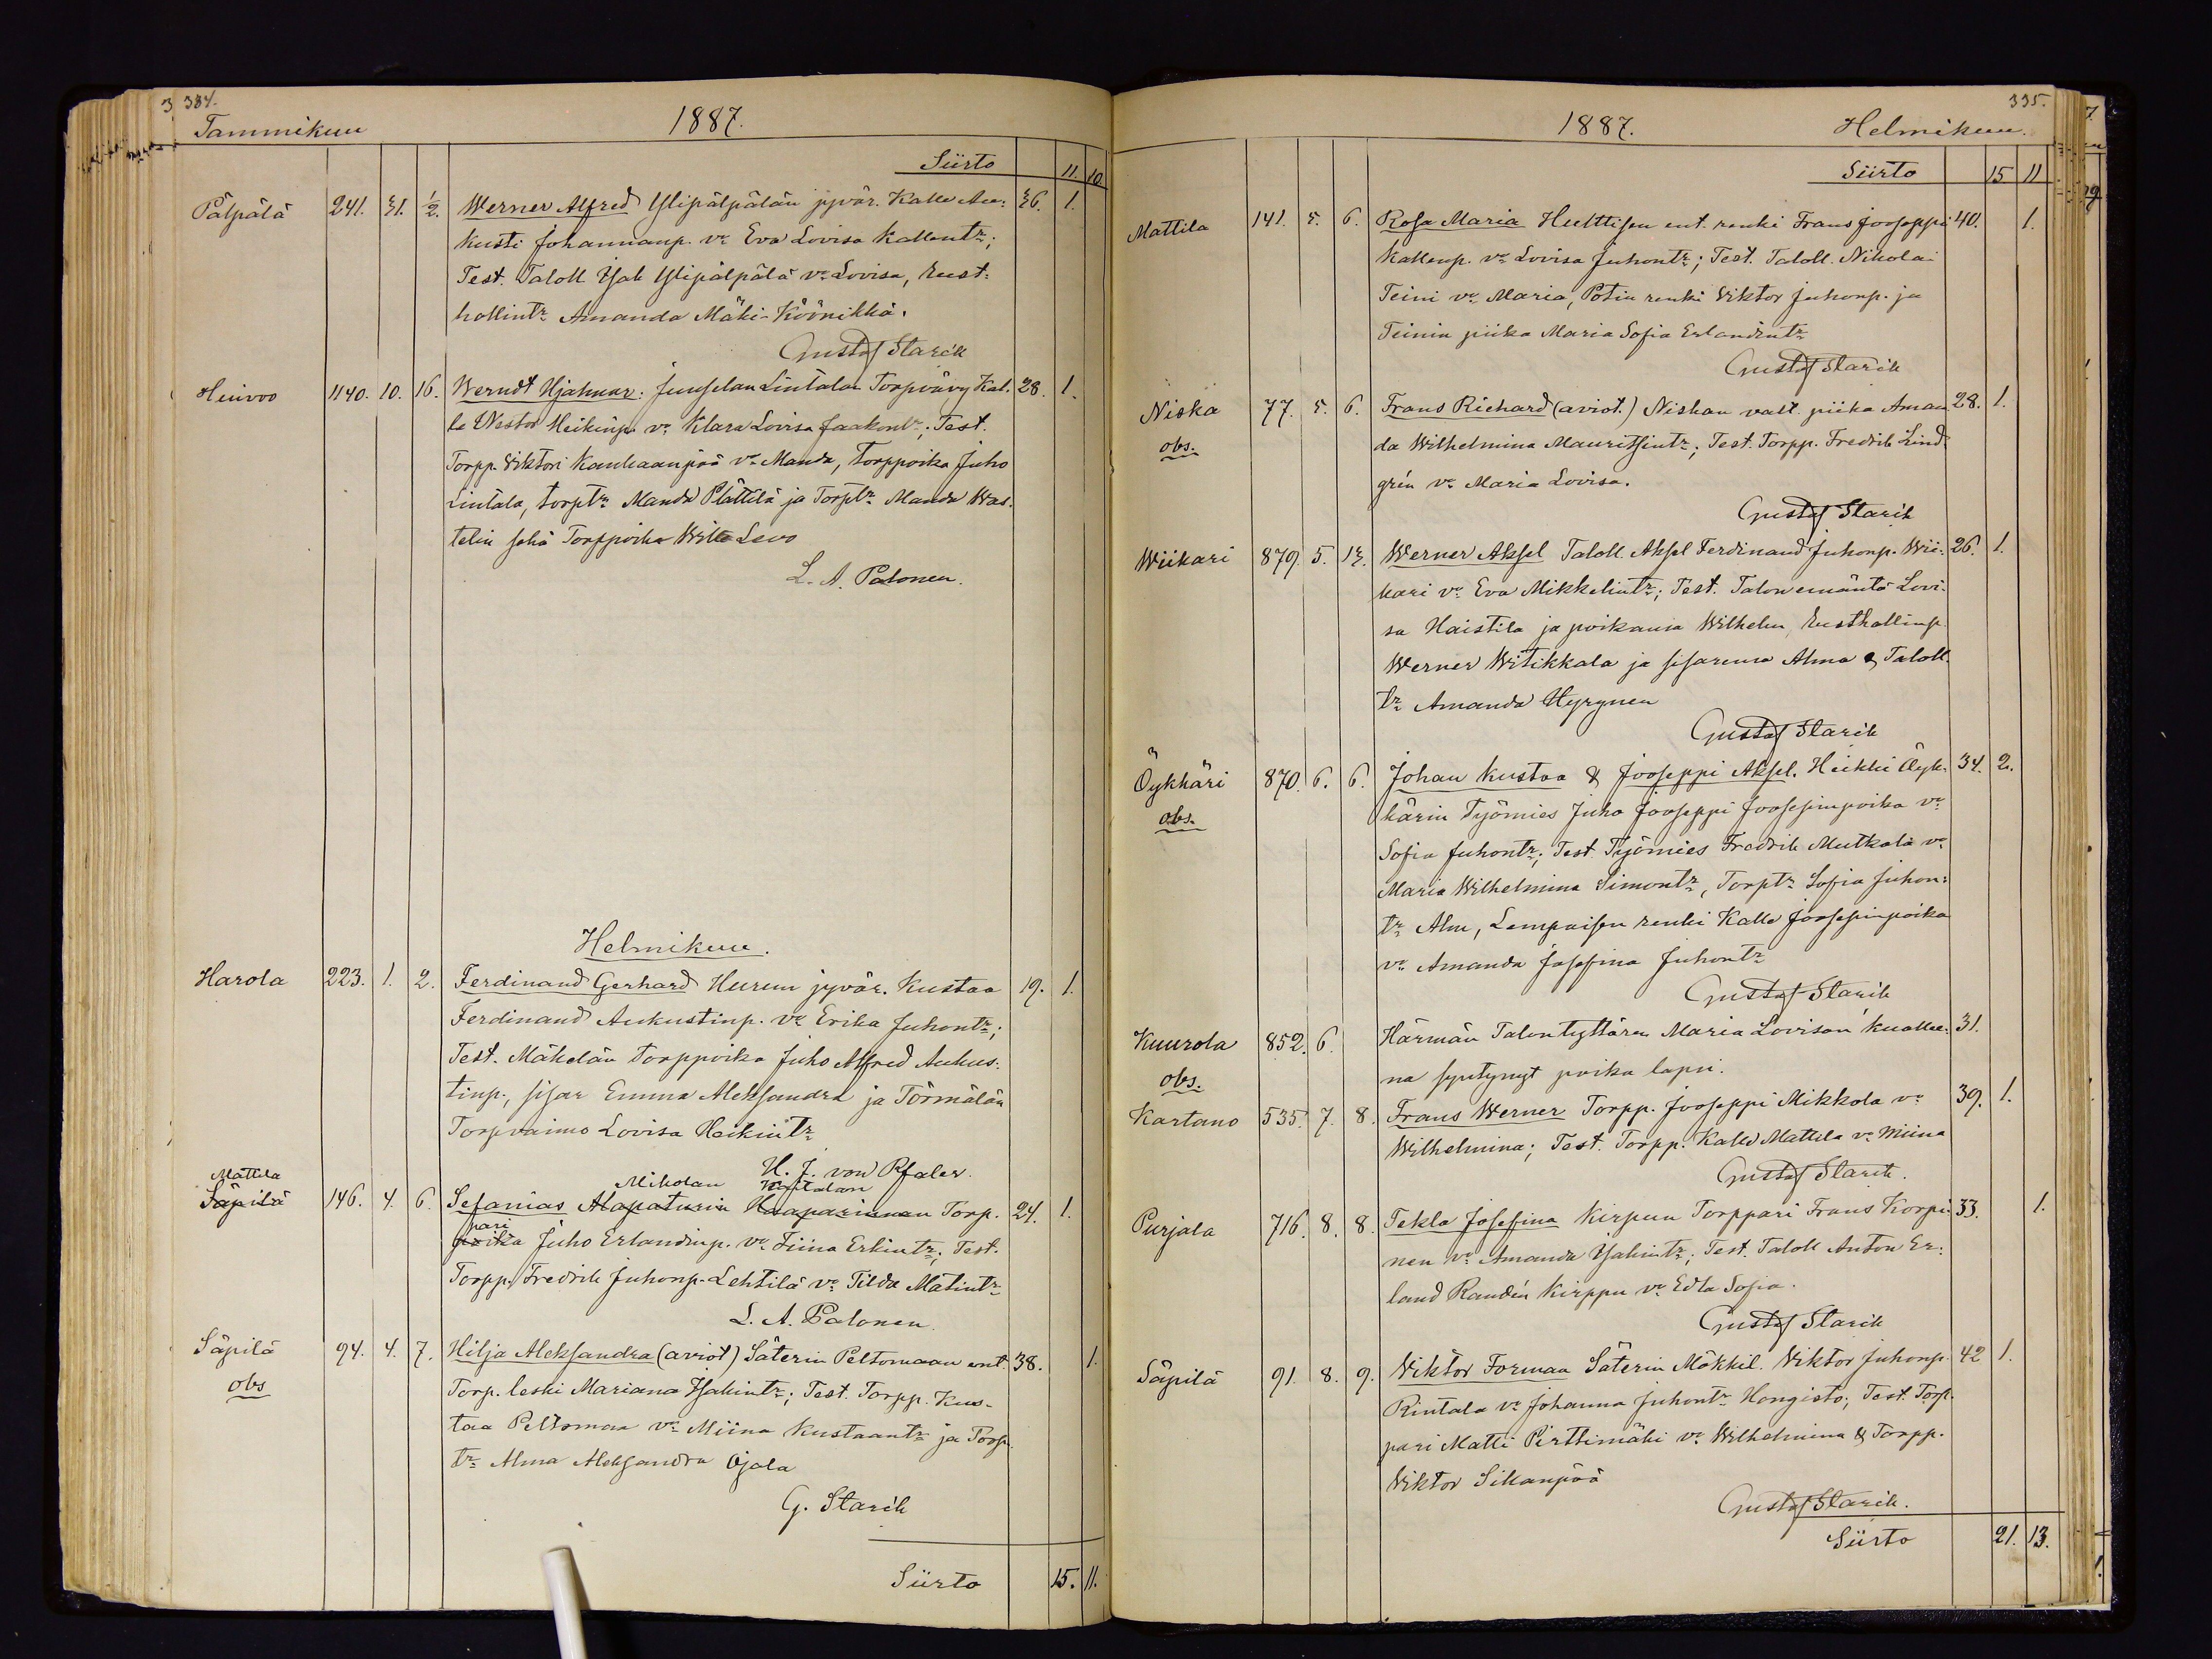 334.
Tammikuu 1887.
Siirto 11. 10
Pälpälä 241. 31. 1/2. Werner Alfred Ylipälpälän jyvär. Kalle Au= 36. 1.
kusti Johannanp. vo Eva Lovisa Kallentr;
Test. Taloll Isak Ylipälpälä vo Lovisa, Rust=
hollintr Amanda Mäki-Köönikkä.
Gustaf Starck
Heinoo 1140. 10. 16. Werndt Hjalmar: Junselan Lintalan Torpvävy Kal. 28. 1.
le Nestor Heikinp. vo Klara Lovisa Jaakontr; Test.
Torpp. Viktori Kankaanpää vo Manda, Torppoika Juho
Lintala, torptr Manda Plättilä ja Torptr Manda Was.
telin sekä Torppoika Wille Levo
L. A. Palonen.
Helmikuu.
Harola 223. 1. 2. Ferdinand Gerhard Hurun jyvär. Kustaa 19. 1.
Ferdinand Aukustinp. vo Erika Juhontr;
Test. Mäkelän torppoika Juho Alfred Aukus=
tinp., sisar Emma Aleksandra ja Törmälän
Torpvaimo Lovisa Heikintr
H. J. von Pfaler.
Mattila Mikolan
Säpilä 146. 4. 6. Sefanias Alapaturin Haaparinnan Torp. 24. 1.
pari
poika Juho Erlandinp. vo Fiina Erkintr; Test.
Torpp. Fredrik Juhonp. Lehtilä vo Tilda Matintr
L. A. Palonen.
Säpilä 94. 4. 7. Hilja Aleksandra (aviot) Säterin Peltomaan ent. 38. 1.
obs Torp. leski Mariana Isakintr; Test. Torpp. Kus-
taa Peltomaa vo Miina Kustaantr ja Torp.
tr Alma Aleksandra Ojala
G. Starck
Siirto 15. 11.
335.
1887. Helmikuu.
Siirto 15 11
Mattila 141. 5. 6. Rosa Maria Hulttisen ent. renki Frans Jooseppi 40. 1.
Kallenp. vo Lovisa Juhontr; Test. Taloll. Nikolai
Teini vo Maria, Potin renki Viktor Juhonp. ja
Teinin piika Maria Sofia Erlandintr
Gustaf Starck
Niska 77. 5. 6. Frans Richard (aviot.) Niskan vast. piika Aman 28. 1.
obs. da Wilhelmina Mauritsintr; Test. Torpp. Fredrik Lind
grén vo Maria Lovisa.
Gustaf Starck
Wiikari 879. 5. 13. Werner Aksel Taloll. Aksel Ferdinand Juhonp. Wii= 26. 1.
kari vo Eva Mikkelintr; Test. Talonemäntä Lovi=
sa Haistila ja poikansa Wilhelm, Rusthollinp.
Werner Witikkala ja sisarensa Alma & Taloll.
tr Amanda Hyrynen
Gustaf Starck
Öykkäri 870. 6. 6. Johan Kustaa & Jooseppi Aksel. Heikki Öyk= 34. 2.
obs. kärin Työmies Juho Jooseppi Joosepinpoika vo
Sofia Juhontr; Test. Työmies Fredrik Mutkala vo
Maria Wilhelmina Simontr, Torptr Sofia Juhon=
tr Alm, Lempaisen renki Kalle Joosepinpoika
vo Amanda Josefina Juhontr
Gustaf Starck
Kuurola 852. 6. Härmän Talontyttären Maria Lovisan kuollee= 31.
obs. na syntynyt poika lapsi.
Kartano 535. 7. 8. Frans Werner Torpp. Jooseppi Mikkola vo 39. 1.
Wilhelmina; Test. Torpp. Kalle Mattila vo Miina
Gustaf Starck.
Purjala 716. 8. 8. Tekla Josefina Kirpun Torppari Frans Korpi= 33. 1.
nen vo Amanda Isakintr; Test. Taloll Anton Er=
land Randén Kirppu vo Edla Sofia.
Gustaf Starck
Säpilä 91. 8. 9. Viktor Forman Säterin Mökkil. Viktor Juhonp. 42 1.
Rintala vo Johanna Juhontr Hongisto; Test. Torp.
pari Matti Pirttimäki vo Wilhelmina & Torpp.
Viktor Sikanpää
Gustaf Starck.
Siirto 21. 13.